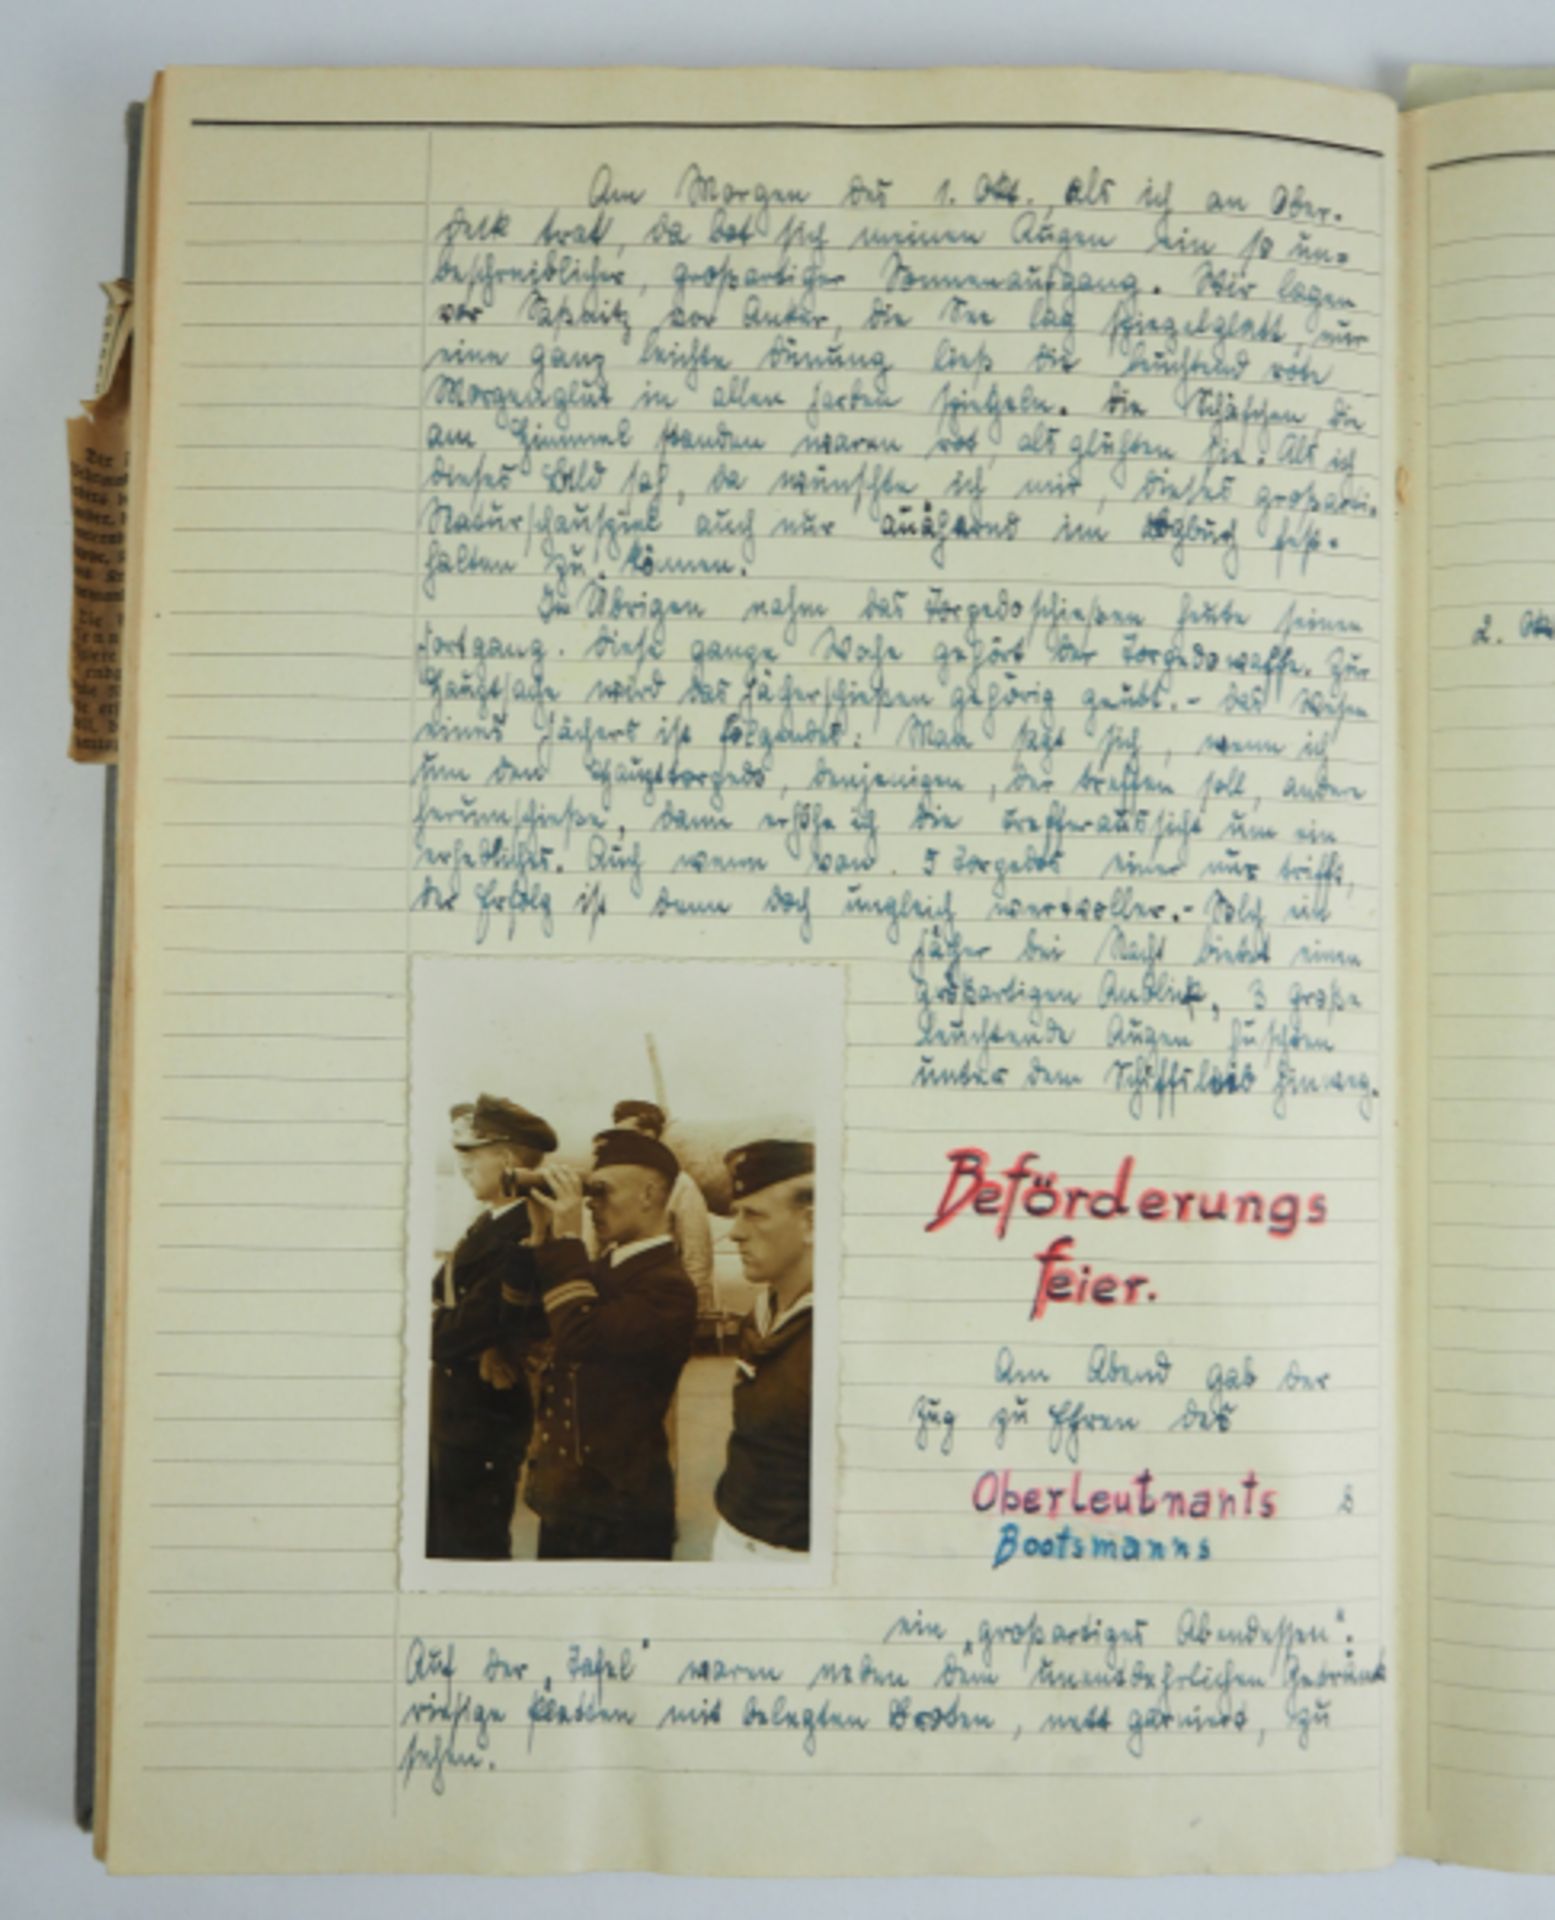 Am Morgen des 1. Okt., als ich an Ober-
deck trat, da bot sich meinen Augen ein so un-
beschreiblicher, großartiger Sonnenaufgang. Wir lagen
vor Saßnitz vor Anker, die See lag spiegelglatt, nur
eine ganz leichte Dünung ließ die leuchtend rote
Morgenglut in allen Farben spiegeln. Die Schäfchen, die
am Himmel standen waren rot, als glühten sie. Als ich
dieses Bild sah, da wünschte ich mir, dieses großarti-
Naturschauspiel auch nur annähernd im Logbuch fest-
halten zu können.
Im Übrigen nahm das Torpedoschießen heute seinen
Fortgang. Diese ganze Woche gehört der Torpedowaffe. Zur
Hauptsache wird das Fächerschießen gehörig geübt. - Das Wesen
eines Fächers ist folgendes: Man sagt sich, wenn ich
um den Haupttorpedo, denjenigen, der treffen soll, andere
herumschieße, dann erhöhe ich die Trefferaussicht um ein
erhebliches. Auch wenn von 5 Torpedos einer nur trifft,
der Erfolg ist dann doch ungleich wertvoller. - Solch ein
Fächer bei Nacht bietet einen
großartigen Anblick, 3 große
leuchtende Augen huschen
unter dem Schiffsleib hinweg.
Beförderungs
feier.
Am Abend gab der
Zug zu Ehren des
Oberleutnants
Bootsmanns
ein "großartiges Abendessen".
Auf der "Tafel" waren neben dem unentbehrlichen Getränk
riesige Platten mit belegten Broten, nett garniert, zu
sehen.
2.